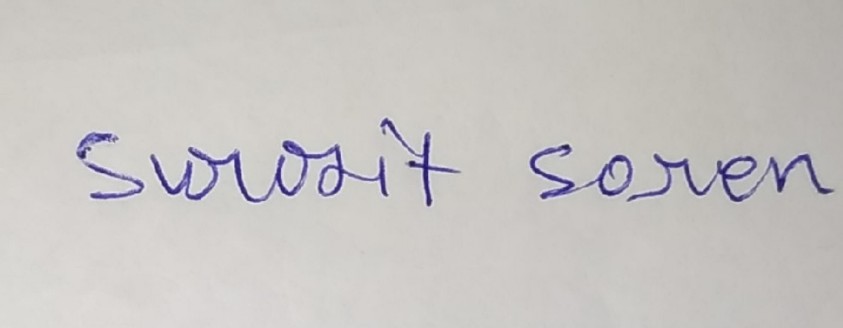 Surosit soren